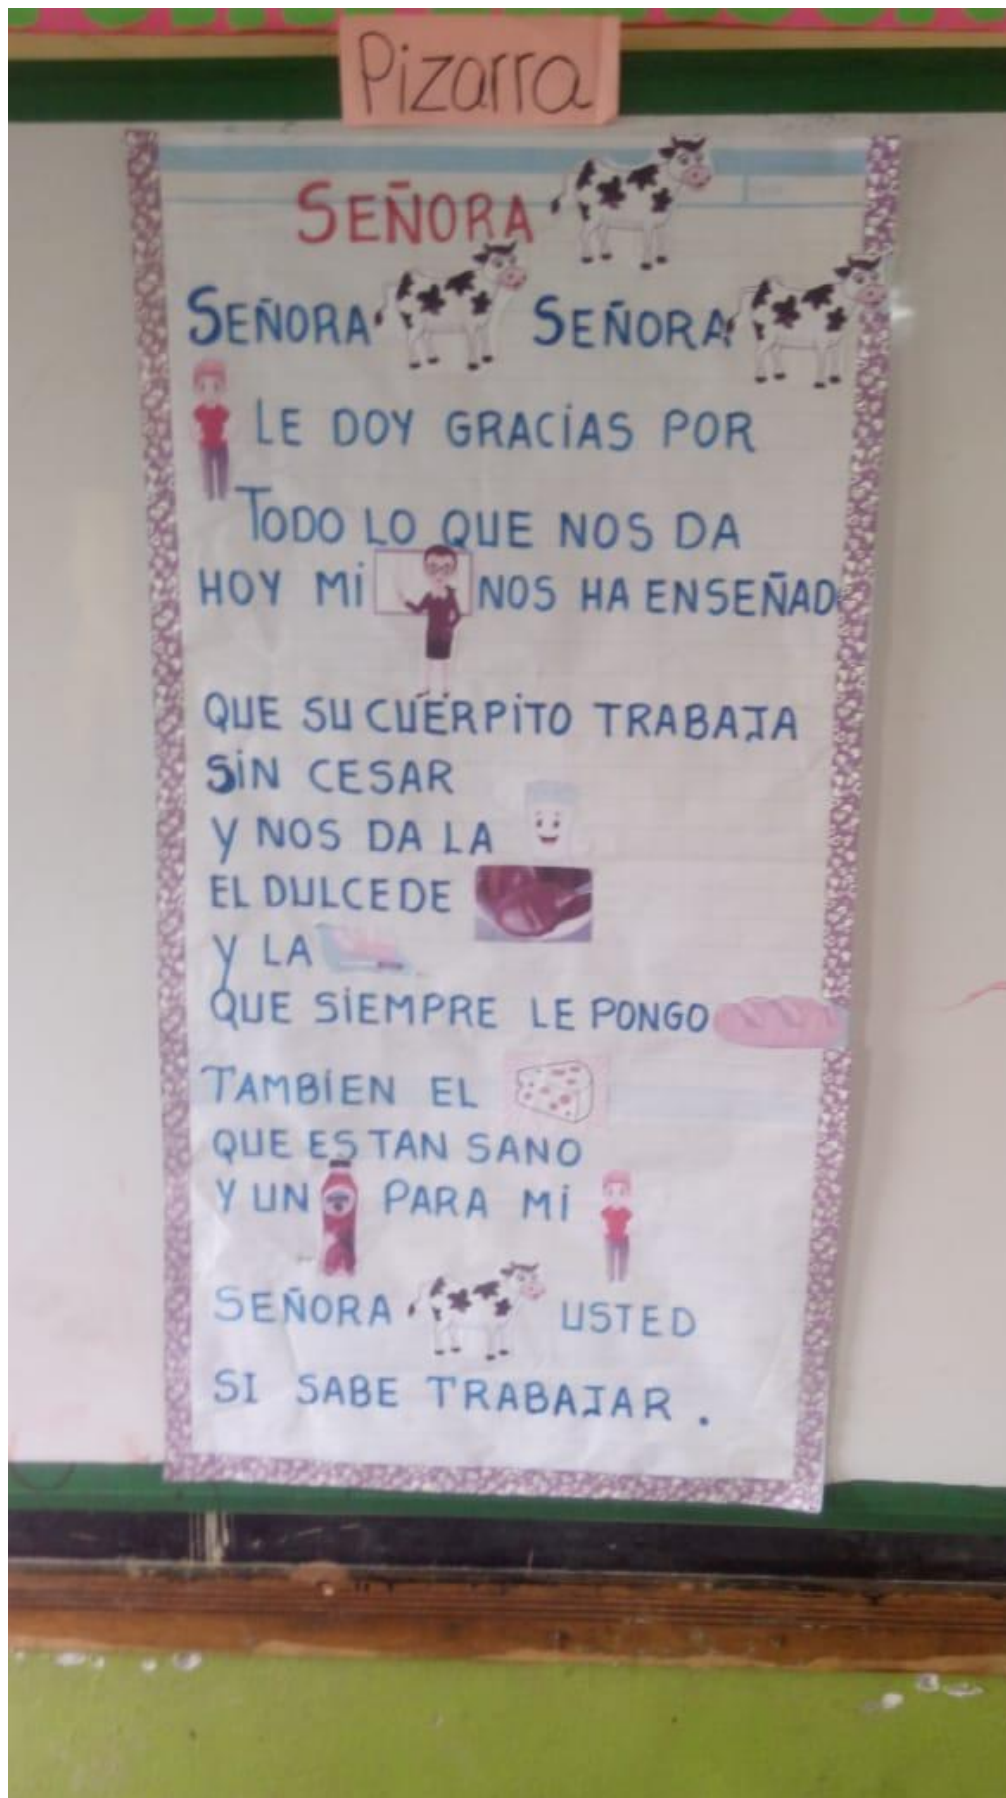 Pizarra
SEÑORA
SEÑORA SEÑORA
LE DOY GRACIAS POR
TODO LO QUE NOS DA
HOY MI NOS HA ENSEÑADO
QUE SU CUERPITO TRABAJA
SIN CESAR
Y NOS DA LA
EL DULCE DE
Y LA
QUE SIEMPRE LE PONGO
TAMBIEN EL
QUE ES TAN SANO
Y UN PARA MI
SEÑORA USTED
SI SABE TRABAJAR.